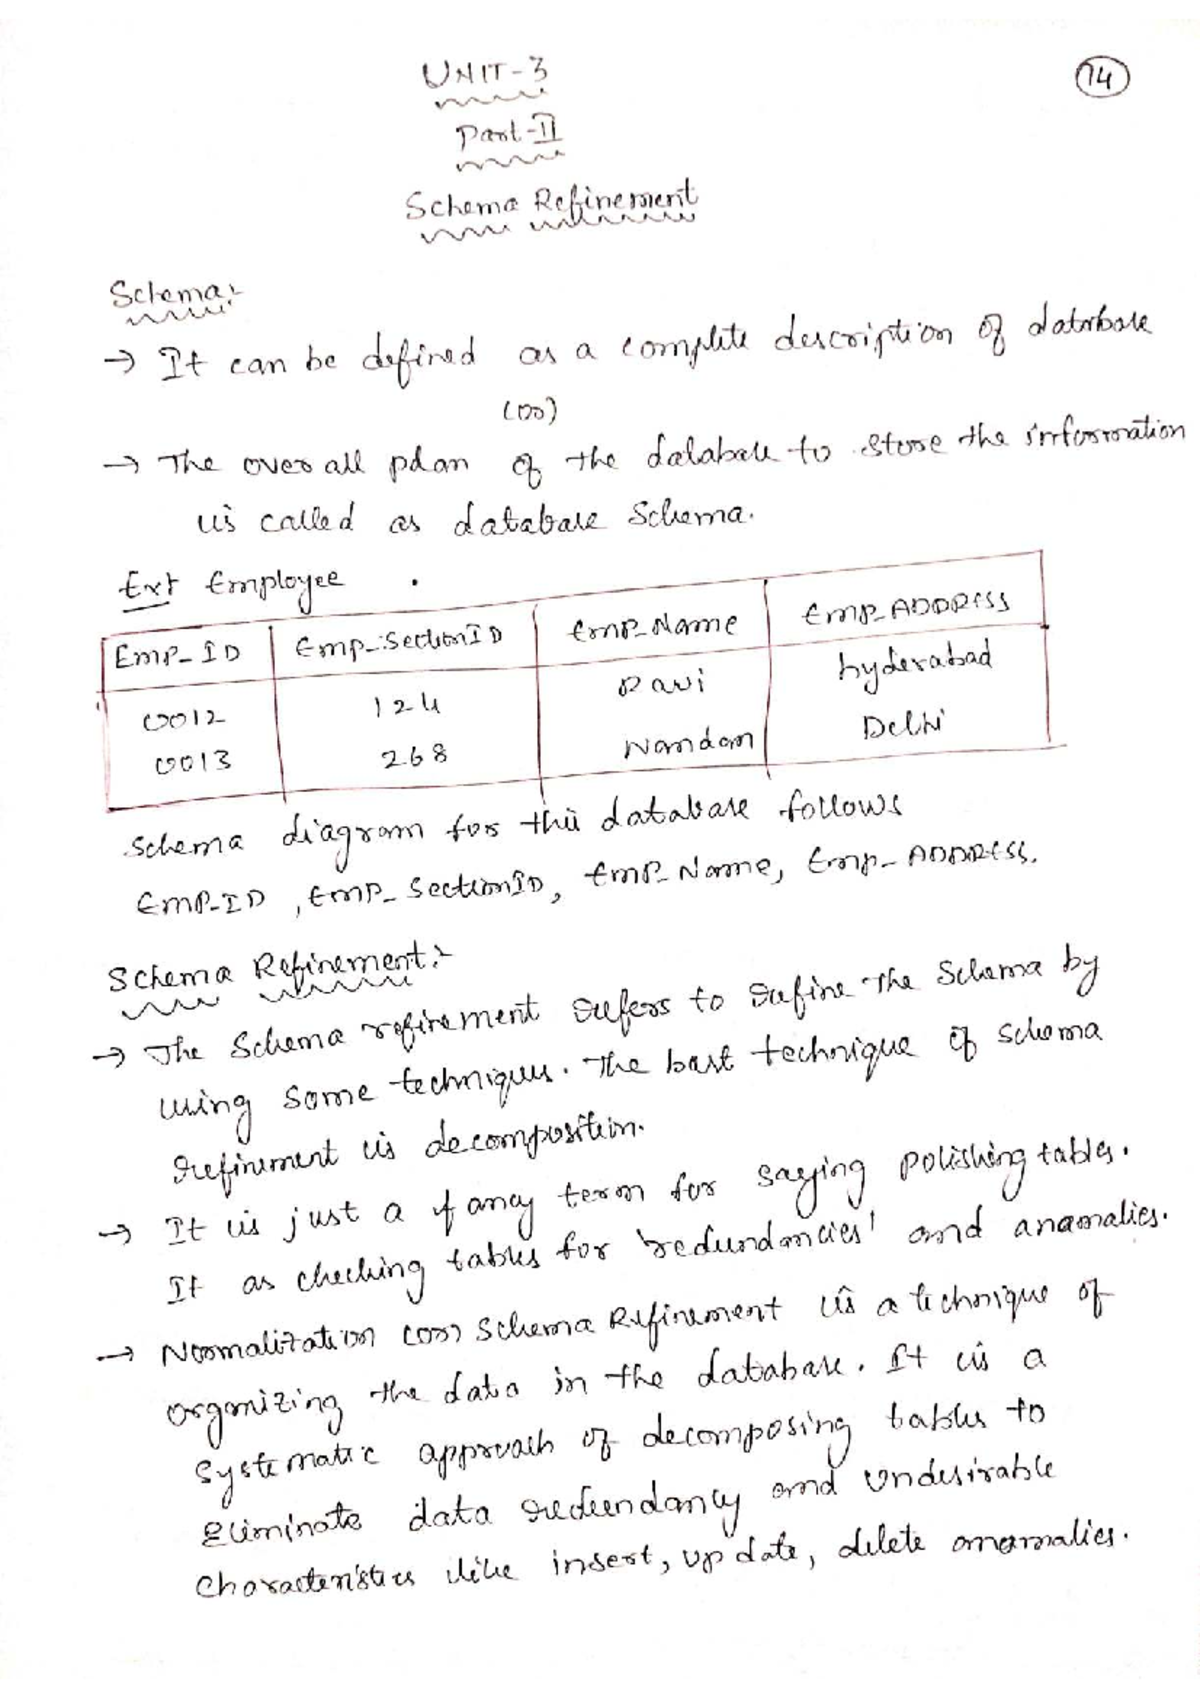 UNIT-3
14
Part-II
Schema Refinement
Schema:-
→ It can be defined as a complete description of database
(or)
→ The over all plan of the database to store the information
is called as database Schema.
Ex:- Employee
Emp_ID Emp_SectionID Emp_Name Emp_ADDRESS
0012 124 Ravi hyderabad
0013 268 Nandan Delhi
Schema diagram for this database follows
Emp_ID, Emp_SectionID, Emp_Name, Emp_ADDRESS.
Schema Refinement:-
→ The Schema refinement refers to refine the Schema by
using some techniques. The best technique of schema
refinement is decomposition.
→ It is just a fancy term for saying polishing tables.
It as checking tables for 'redundancies' and anamalies.
→ Normalization (or) Schema Refinement is a technique of
organizing the data in the database. It is a
systematic approach of decomposing tables to
Eliminate data redundancy and undesirable
characteristics like insert, update, delete anamalies.